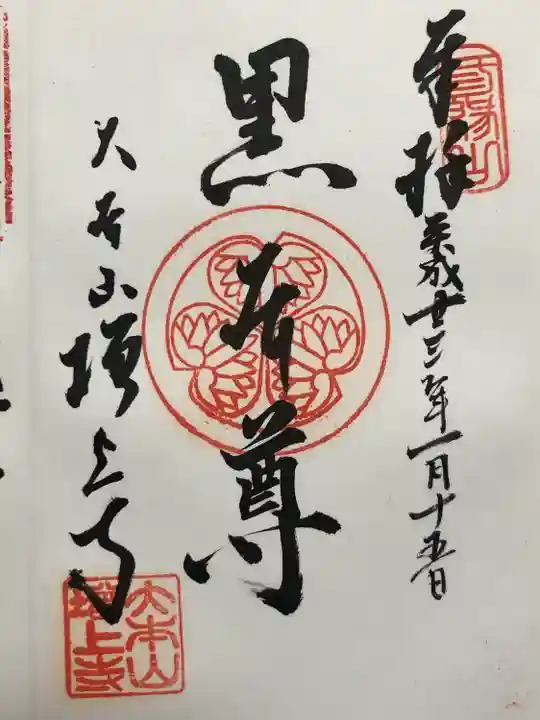 三縁山
奉拝
平成廿三年一月十五日
黒本尊
大本山増上寺
大本山
増上寺